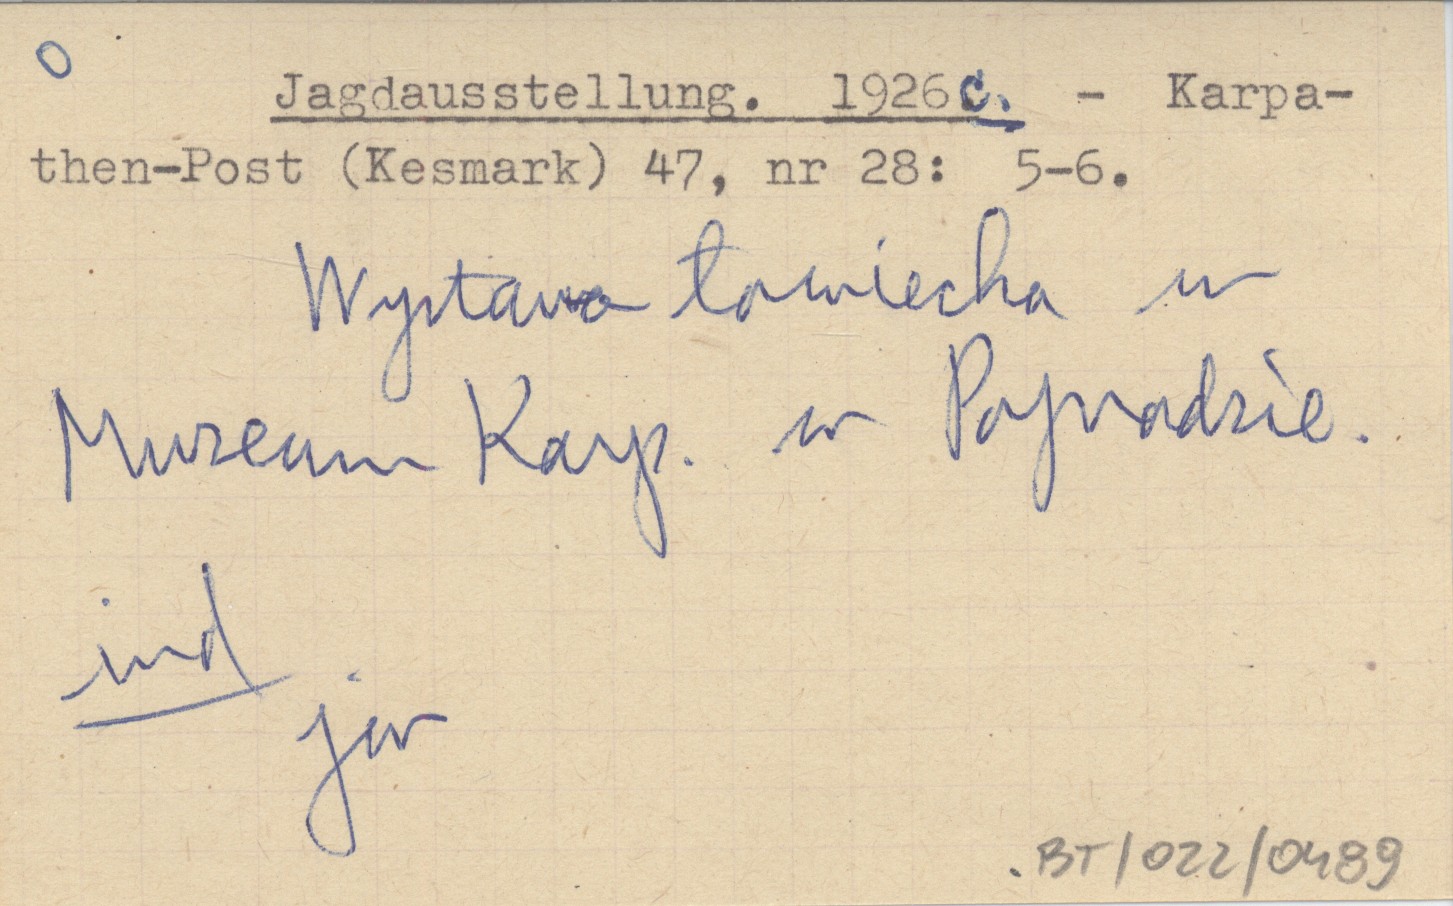 O
Jagdausstellung. 1926c. - Karpa-
then-Post (Kesmark) 47, nr 28: 5-6.
Wystawa łowiecka w
Muzeum Karp. w Popradzie.
ind
jw
BT/022/0489